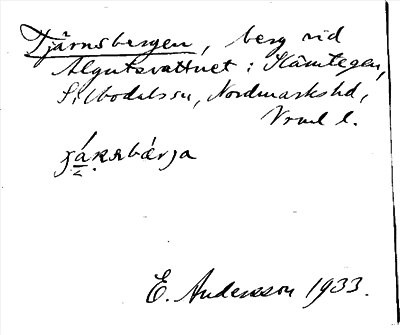 Tjärnsbergen, berg vid
Algutsvattnet i Hämtegen,
Silbodalssn, Nordmarkshd,
Vrml l.
E. Andersson 1933.